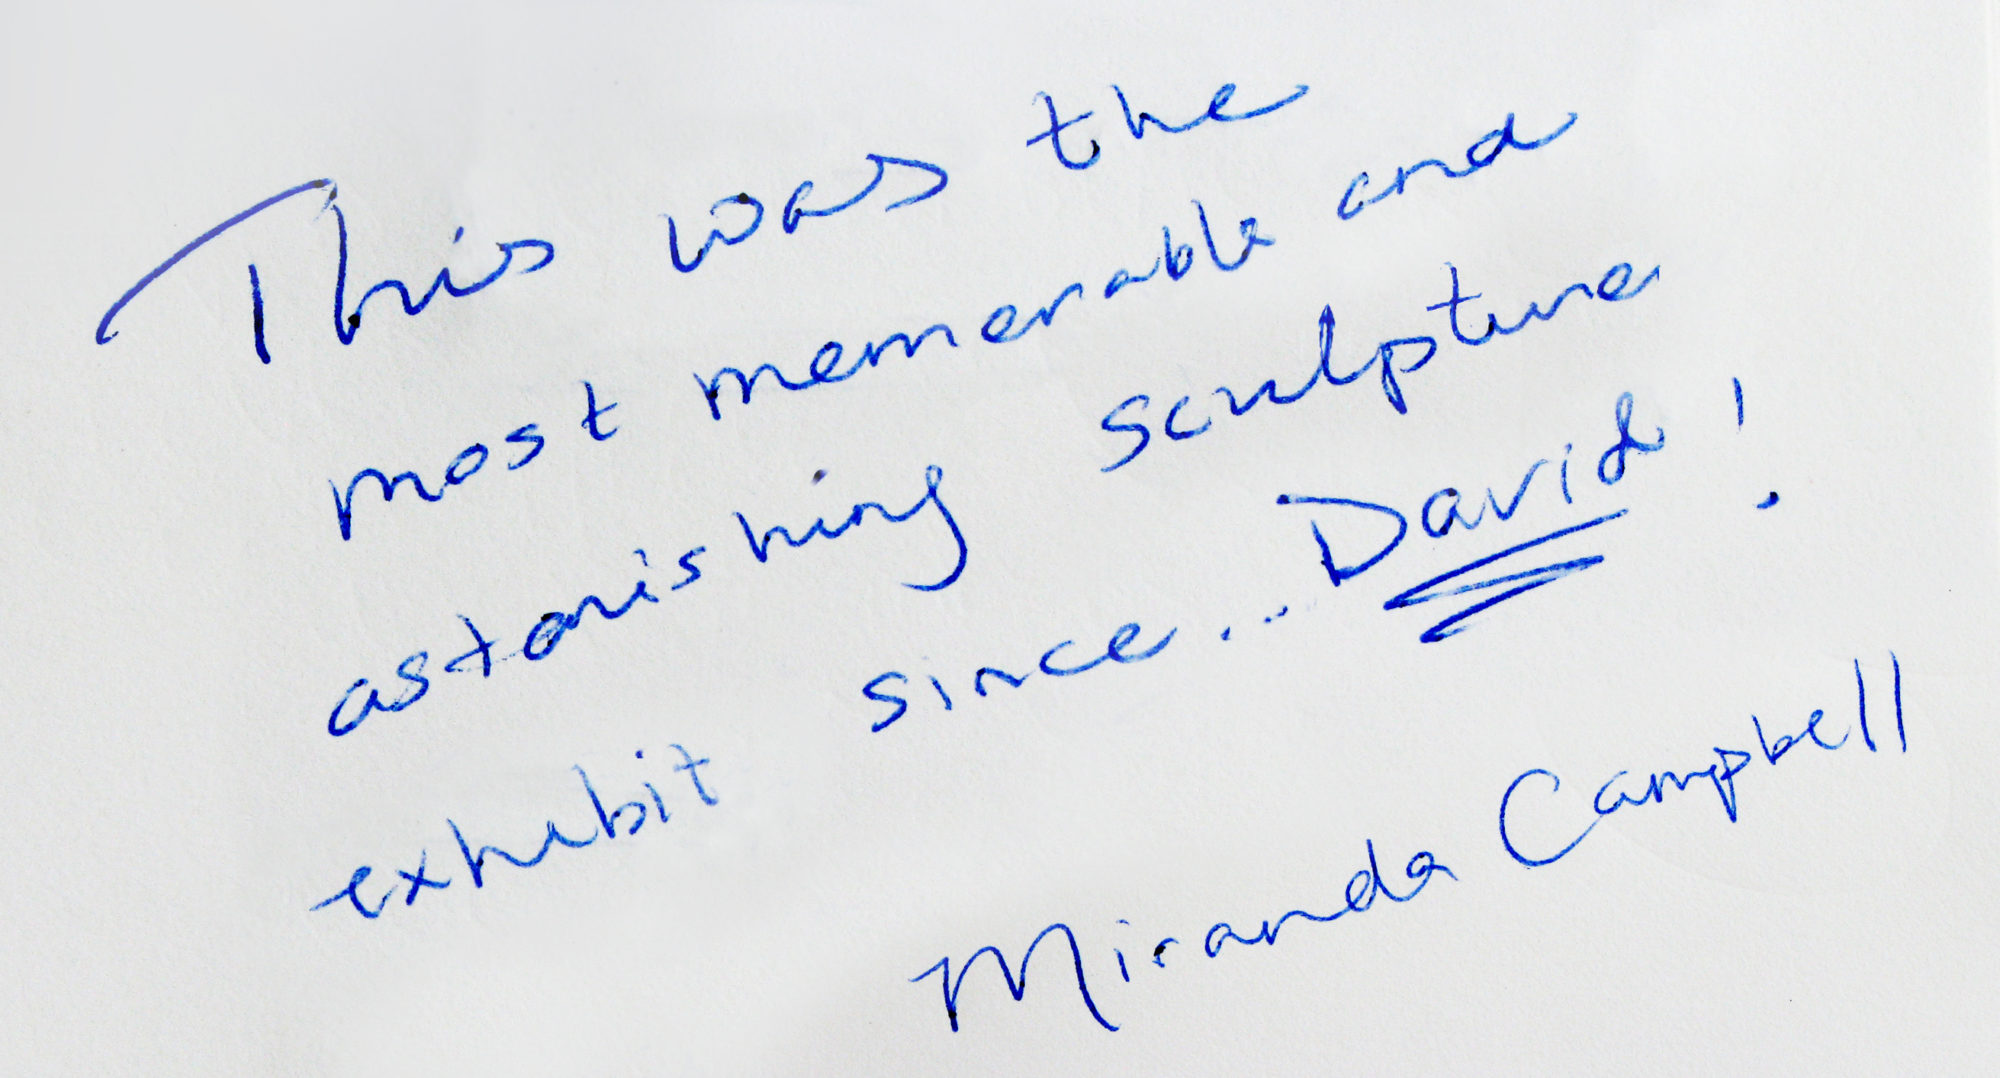 This was the
most memorable and
astonishing sculpture
exhibit since... David!
Miranda Campbell